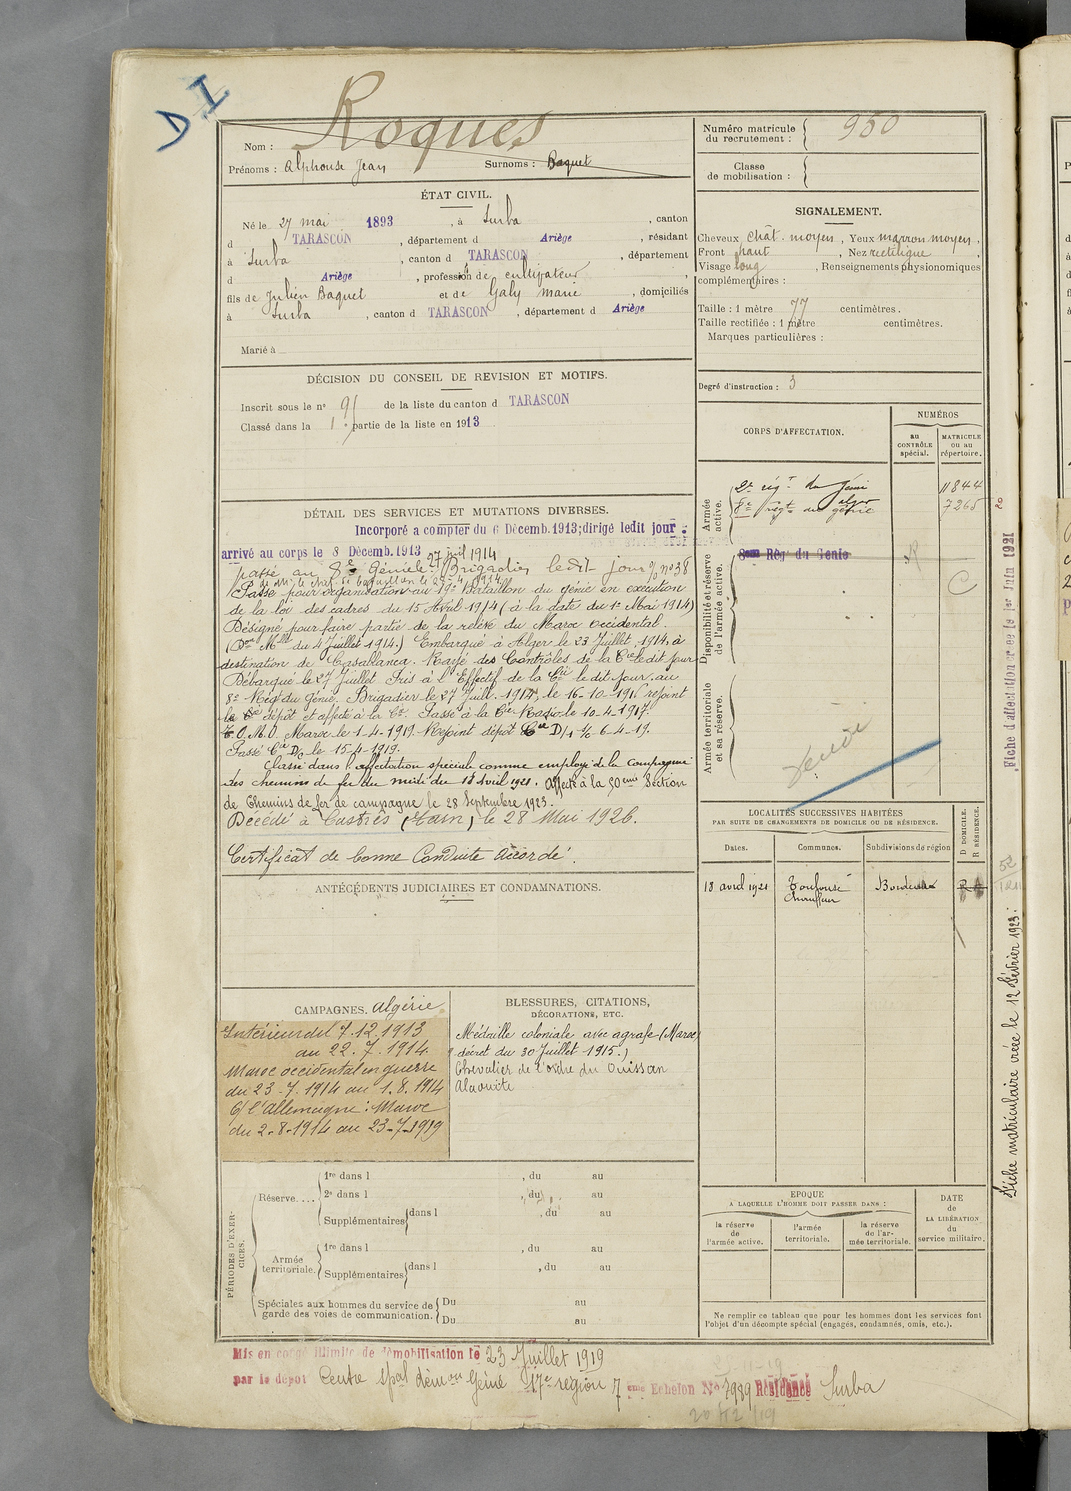 D I
Nom : Roques
Prénoms : Alphonse Jean Surnoms : Baquet
Numéro matricule du recrutement : 950
Classe de mobilisation :
ÉTAT CIVIL.
Né le 27 mai 1893, à Surba, canton
d TARASCON, département d Ariège, résidant
à Surba, canton d TARASCON, département
d Ariège, profession de cultivateur,
fils de Julien Baquet et de Galy Marie, domiciliés
à Surba, canton d TARASCON, département d Ariège
Marié à
SIGNALEMENT.
Cheveux chât. moyen, Yeux marron moyen,
Front haut, Nez rectiligne
Visage long, Renseignements physionomiques
complémentaires :
Taille : 1 mètre 77 centimètres.
Taille rectifiée : 1 mètre centimètres.
Marques particulières :
Degré d'instruction : 3
DÉCISION DU CONSEIL DE REVISION ET MOTIFS.
Inscrit sous le n° 91 de la liste du canton d TARASCON
Classé dans la 1e partie de la liste en 1913
CORPS D'AFFECTATION.
NUMÉROS
au CONTRÔLE spécial.
MATRICULE ou au répertoire.
Armée active.
2e régt du génie 11844
8e régt du génie 7265
alger
Disponibilité et réserve de l'armée active.
8eme Rég du Genie
R
C
Armée territoriale et sa réserve.
DÉTAIL DES SERVICES ET MUTATIONS DIVERSES.
Incorporé a compter du 6 Décemb. 1913; dirigé ledit jour :
arrivé au corps le 8 Décemb. 1913
passé au 8e Génie le 27 juil 1914 Brigadier ledit jour % n° 38
Passé pour organisation au 19e Bataillon du génie en exécution
de la loi des cadres du 15 Avril 1914 (à la date du 1er Mai 1914)
Désigné pour faire partie de la relève du Maroc occidental.
(Don Mlle du 4 Juillet 1914.) Embarqué à Alger le 23 Juillet 1914, à
destination de Casablanca. Rayé des Contrôles de la Cie ledit jour
Débarqué le 27 Juillet Pris à l'Effectif de la Cie le dit jour. au
8e Rég du Génie. Brigadier le 27 Juill. 1914, le 16-10-1916 rejoint
le dépôt et affecté à la Cie. Passé à la Cie Radio le 10-4-1917.
T.O.M.O Maroc le 1-4-1919. Rejoint dépôt Cie D/1 % 6-4-19.
Passé Cie le 15-4-1919.
Classé dans l'affectation spéciale comme employé de la Compagnie
des chemins de fer du midi du 18 Avril 1921. Affecté à la 50eme Section
de Chemins de fer de campagne le 28 Septembre 1923.
Décédé à Castres (Tarn) le 28 Mai 1926.
Certificat de bonne Conduite Accordé.
ANTÉCÉDENTS JUDICIAIRES ET CONDAMNATIONS.
LOCALITÉS SUCCESSIVES HABITÉES
PAR SUITE DE CHANGEMENTS DE DOMICILE OU DE RÉSIDENCE.
Dates. Communes. Subdivisions de région
D DOMICILE. R RÉSIDENCE.
18 avril 1921 Toulouse Bordeaux R
Chauffeur
CAMPAGNES. Algérie
Intérieur du 7.12.1913
au 22.7.1914
Maroc occidental en guerre
du 23-7.1914 au 1.8.1914
C/ l'Allemagne : Maroc
du 2-8-1914 au 23-7-1919
BLESSURES, CITATIONS,
DÉCORATIONS, ETC.
Médaille coloniale avec agrafe (Maroc)
décret du 30 Juillet 1915.)
Chevalier de l'ordre du Ouissam
Alaouite
PÉRIODES D'EXERCICES.
Réserve....
1re dans l , du au
2e dans l , du au
Supplémentaires dans l , du au
Armée territoriale.
1re dans l , du au
Supplémentaires dans l , du au
Spéciales aux hommes du service de garde des voies de communication.
Du au
Du au
EPOQUE
A LAQUELLE L'HOMME DOIT PASSER DANS :
la réserve de l'armée active.
l'armée territoriale.
la réserve de l'armée territoriale.
DATE de LA LIBÉRATION du service militaire.
Ne remplir ce tableau que pour les hommes dont les services font
l'objet d'un décompte spécial (engagés, condamnés, omis, etc.).
Mis en congé illimité de démobilisation le 23 Juillet 1919
par le dépot Centre spal démon Génie 17e region 7 eme Echelon N° 7989 Résidence Surba
20/12/19
Fiche d'affectation créée le 1er Juin 1921
Fiche matriculaire créée le 12 Février 1923.
52